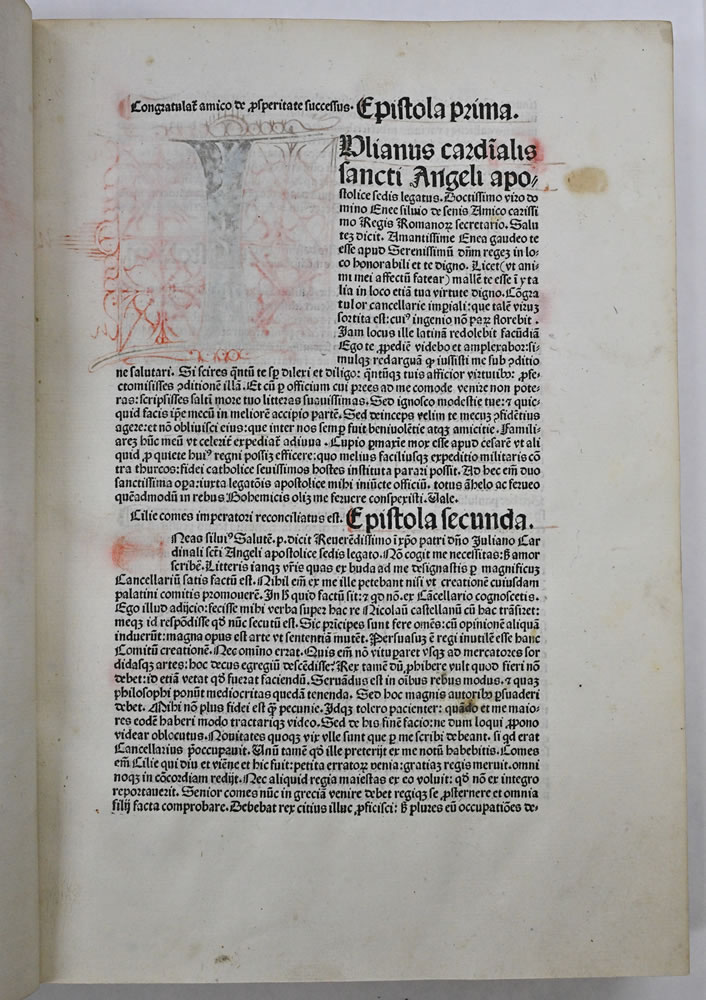 Congratulat̄ amico de ꝓsperitate successus. Epistola prima.
Vlianus cardīalis
sancti Angeli apo⸗
stolice sedis legatus. Doctissimo viro do
mino Enee siluio de senis Amico carissi
mo Regis Romanoꝝ secretario. Salu
teꝫ dicit. Amantissime Enea gaudeo te
esse apud Serenissimū dn̄m regeꝫ in lo⸗
co honorabili et te digno. Licet (vt ani⸗
mi mei affectū fatear) mallē te esse ī yta
lia in loco etiā tua virtute digno. Cōgra
tulor cancellarie imꝑiali: que talē viruꝫ
sortita est: cuiꝰ ingenio nō paꝝ florebit.
Jam locus ille latinā redolebit facūdiā
Ego te ꝓpediē videbo et amplexabor: si⸗
mulqꝫ redarguā ꝙ iussisti me sub ꝯditio
ne salutari. Si scires q̄ntū te sꝑ dilexi et diligo: q̄ntūqꝫ tuis afficior virtutibꝰ: ꝓfe⸗
cto misisses ꝯditionē illā. Et cū ꝑ officium cui prees ad me comode venire non pote⸗
ras: scripsisses saltī more tuo litteras suauissimas. Sed ignosco modestie tue: ⁊ quic⸗
quid facis ip̄e mecū in meliorē accipio partē. Sed deinceps velim te mecuꝫ ꝯfidētius
agere: et nō obliuisci eius: que inter nos semꝑ fuit beniuolētie atqꝫ amicitie. Famili⸗
areꝫ hūc meū vt celerit̄ expediat̄ adiuua. Cupio ꝑmaxie mox esse apud cesarē vt ali
quid ꝓ quiete huiꝰ regni possiꝫ efficere: quo melius faciliusqꝫ expeditio militaris cō
tra thurcos: fidei catholice seuissimos hostes instituta parari possit. Ad hec em̄ duo
sanctissima oꝑa: iuxta legatōis apostolice mihi iniūcte officiū. totus āhelo ac ferueo
quēadmodū in rebus Bohemicis oliꝫ me feruere conspexisti. Uale.
Cilie comes imperatori reconciliatus est. Epistola secunda.
Neas siluiꝰ Salutē. p. dicit Reuerēdissimo ī xp̄o patri dn̄o Juliano Car
dinali sc̄ti Angeli apostolice sedis legato. Nō cogit me necessitas: sꝫ amor
scribē. Litteris ianqꝫ vr̄is quas ex buda ad me designastis ꝑ magnificuꝫ
Cancellariū satis factū est. Nihil em̄ ex me ille petebant nisi vt creationē cuiusdam
palatini comitis promouerē. In hꝫ quid factū sit: ⁊ qd̄ nō. ex Cācellario cognoscetis.
Ego illud adijcio: fecisse mihi verba super hac re Nicolaū castellanū cū hac trāsiret:
meqꝫ id respōdisse qd̄ nūc secutū est. Sic pricipes sunt fere om̄es: cū opinionē aliquā
induerūt: magna opus est arte vt sententiā mutēt. Persuasuꝫ ē regi inutilē esse hanc
Comitū creationē. Nec omīno errat. Quis em̄ nō vituparet vsqꝫ ad mercatores sor
didasqꝫ artes: hoc decus egregiū descēdisse? Rex tamē dū ꝓhibere vult quod fieri nō
debet: id etiā vetat qd̄ fuerat faciendū. Seruādus est in oībus rebus modus. ⁊ quaꝫ
philosophi ponūt mediocritas quedā tenenda. Sed hoc magnis autoribꝰ ꝑsuaderi
debet. Mihi nō plus fidei est q̄ꝫ pecunie. Idqꝫ tolero pacienter: quādo et me maio⸗
res eodē haberi modo tractariqꝫ video. Sed de his finē facio: ne dum loqui ꝓpono
videar oblocutus. Nouitates quoqꝫ vix vlle sunt que ꝑ me scribi debeant. si qd̄ erat
Cancellarius p̄occupauit. Unū tamē qd̄ ille preterijt ex me notū habebitis. Comes
em̄ Cilie qui diu et viēne et hic fuit: petita erratoꝝ venia: gratiaꝫ regis meruit. omni
noqꝫ in cōcordiam redijt. Nec aliquid regia maiestas ex eo voluit: qd̄ nō ex integro
reportauerit. Senior comes nūc in greciā venire debet regiqꝫ se ꝓsternere et omnia
filij facta comprobare. Debebat rex citius illuc ꝓficisci: sꝫ plures eū occupatiōes de⸗